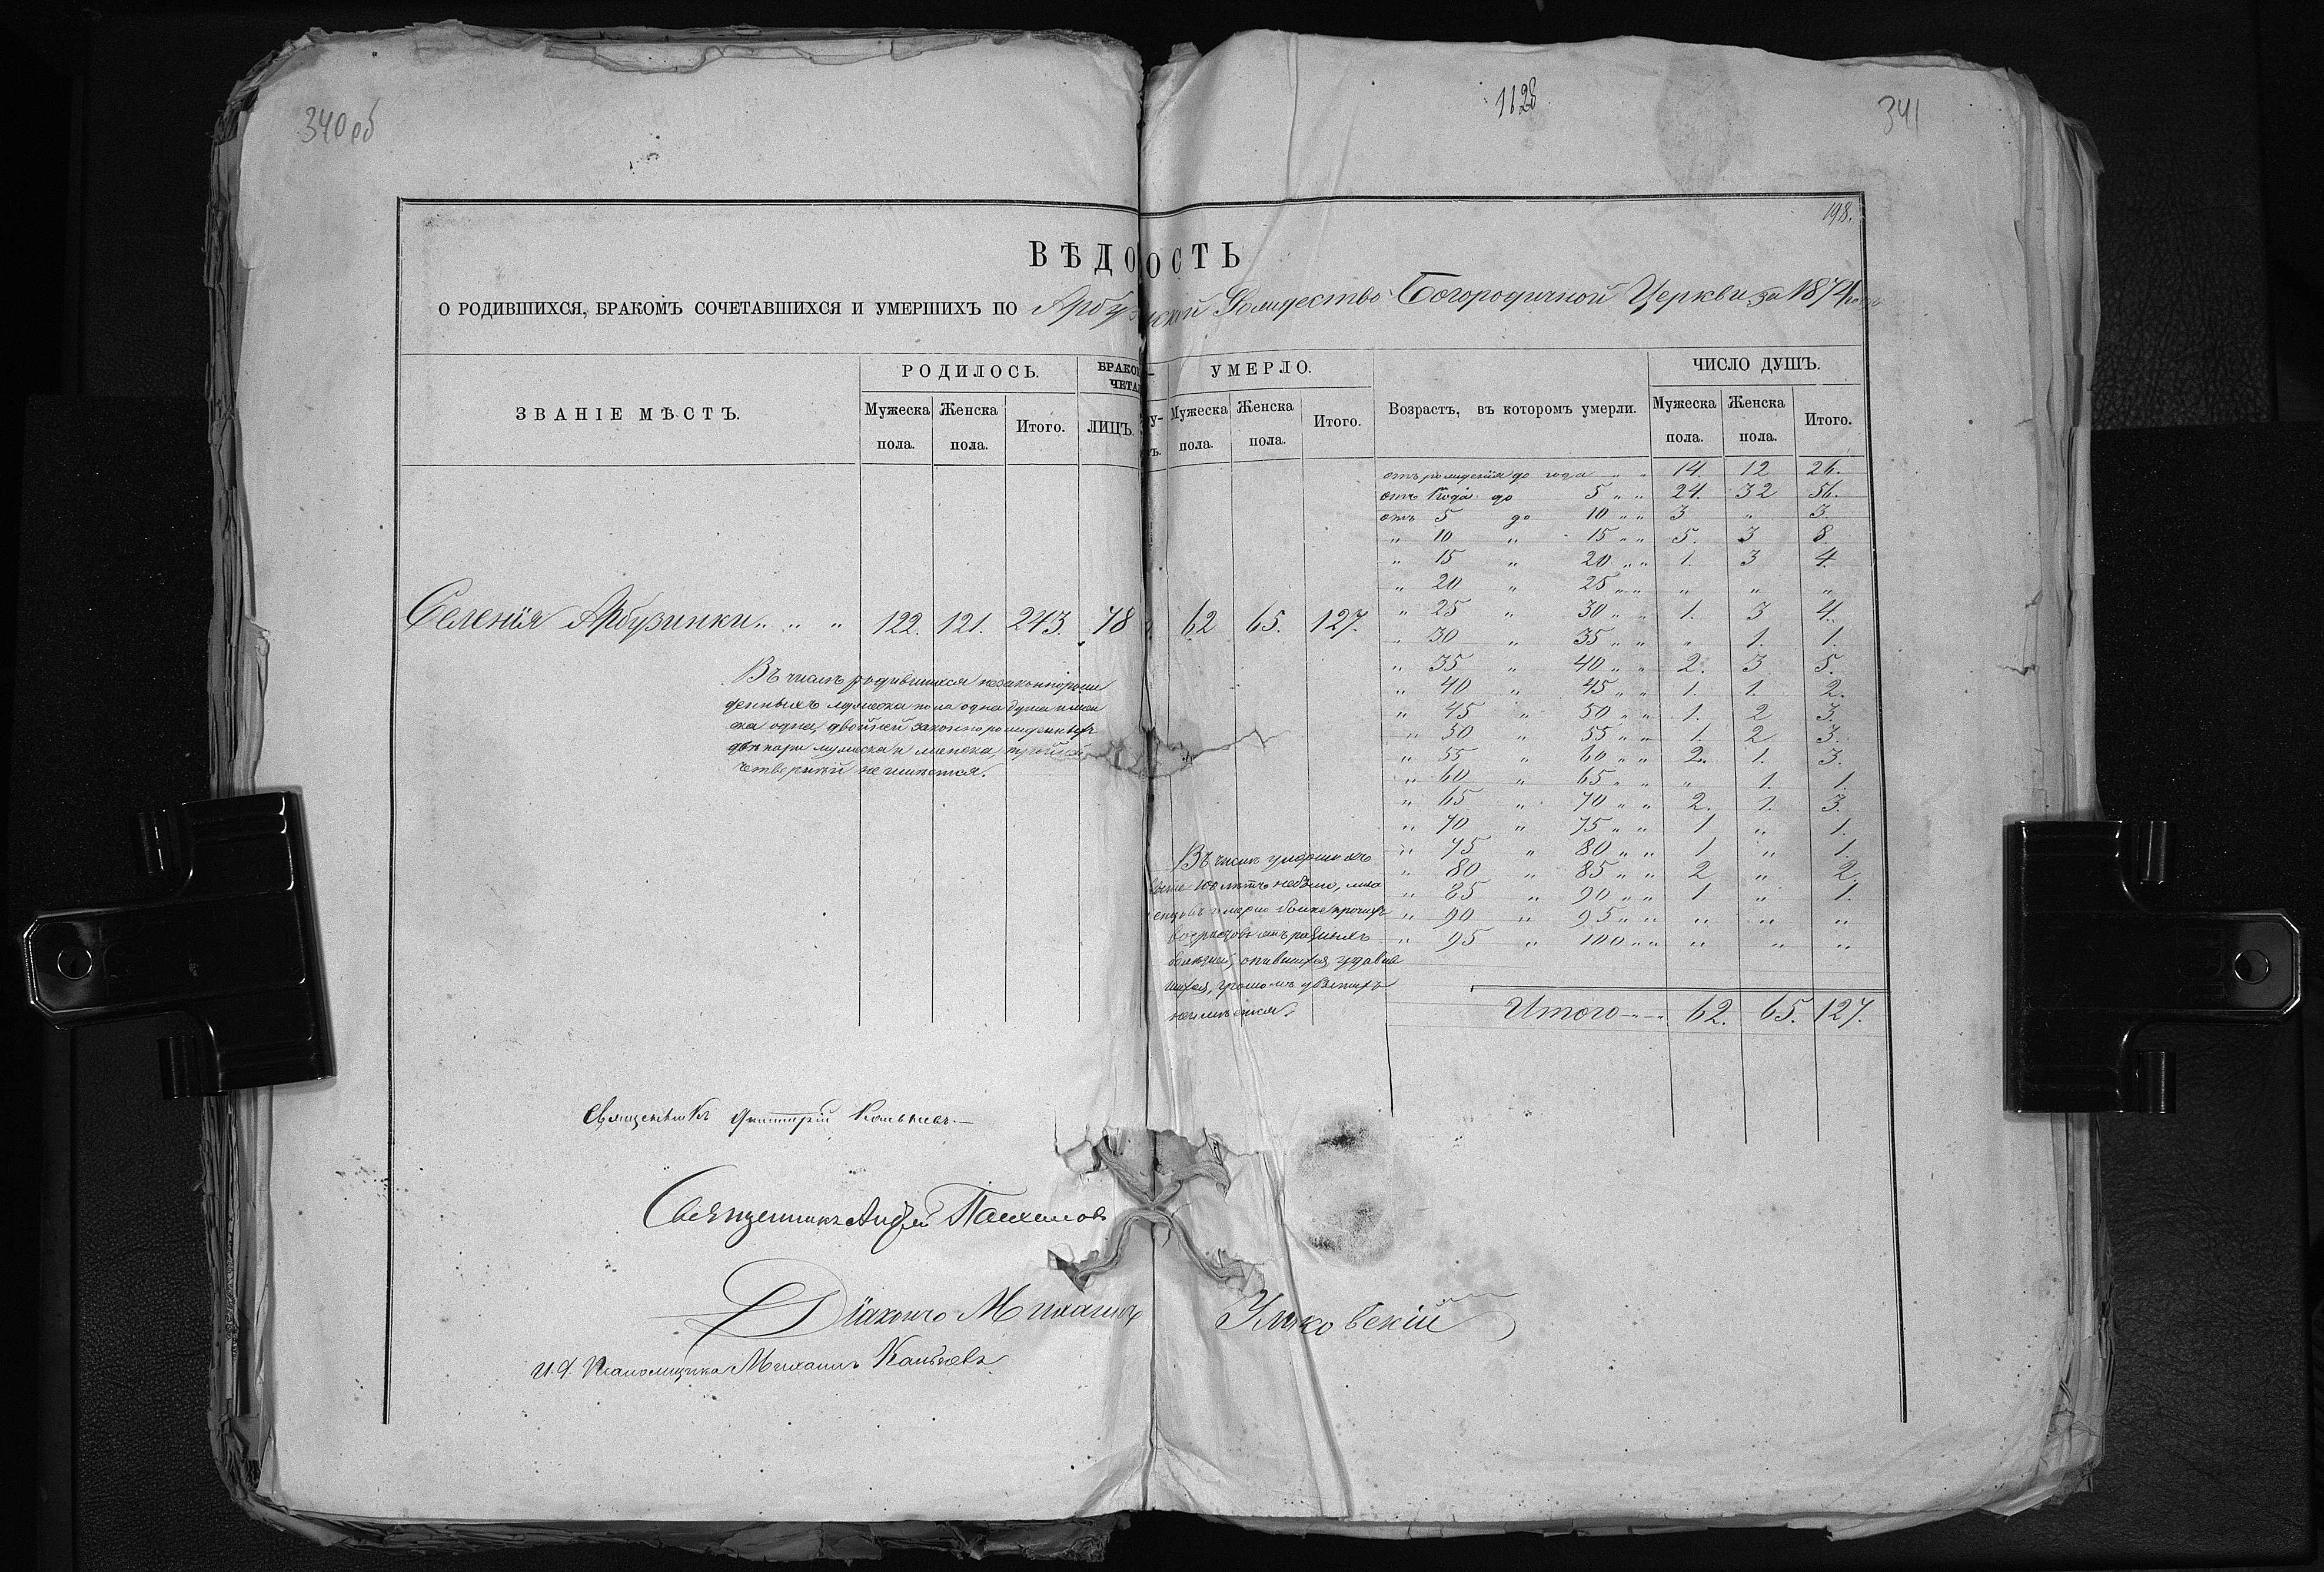 340 об
1128
341
198.
ВѢДО ОСТЬ
О РОДИВШИХСЯ, БРАКОМЪ СОЧЕТАВШИХСЯ И УМЕРШИХЪ ПО Арбузинской Рождество-Богородичной Церкви за 1874 годъ
ЗВАНІЕ МѢСТЪ.
РОДИЛОСЬ.
Мужеска пола.
Женска пола.
Итого.
БРАКО
ЧЕТА
ЛИЦЪ.
УМЕРЛО.
Мужеска пола.
Женска пола.
Итого.
Возрастъ, въ которомъ умерли.
ЧИСЛО ДУШЪ.
Мужеска пола.
Женска пола.
Итого.
Селенія Арбузинки „ „ „ 122. 121. 243. 78 62 65. 127.
Въ числѣ родившихся незаконнорож
денныхъ мужеска пола одна душа и жен
ска одна, двойней законнорожденныхъ
двѣ пары мужеска и женска, тройней
четверней не имѣется.
отъ рожденія до года „ „ 14 12 26.
отъ 1 года до 5 „ „ 24. 32 56.
отъ 5 до 10 „ „ 3 „ 3.
„ 10 „ 15 „ „ 5. 3 8.
„ 15 „ 20 „ „ 1. 3 4.
„ 20 „ 25 „ „ „ „ „
„ 25 „ 30 „ „ 1. 3 4.
„ 30 „ 35 „ „ „ 1. 1.
„ 35 „ 40 „ „ 2. 3 5.
„ 40 „ 45 „ „ 1. 1. 2.
„ 45 „ 50 „ „ 1. 2 3.
„ 50 „ 55 „ „ 1. 2 3.
„ 55 „ 60 „ „ 2. 1. 3.
„ 60 „ 65 „ „ „ 1. 1.
„ 65 „ 70 „ „ 2. 1. 3.
„ 70 „ 75 „ „ 1 „ 1.
„ 75 „ 80 „ „ 1 „ 1.
„ 80 „ 85 „ „ 2 „ 2.
„ 85 „ 90 „ „ 1 „ 1.
„ 90 „ 95 „ „ „ „ „
„ 95 „ 100 „ „ „ „ „
Итого 62. 65. 127.
Въ числѣ умершихъ
выше 100 лѣтъ небыло, мла
енцовъ умерло болѣе прочихъ
возрастовъ отъ разныхъ
болѣзней, опившихся, удавив
шихся, громомъ убитыхъ
неимѣется.
Священникъ Димитрій
Священникъ Андрей
Діаконъ Михаилъ
И. д. Псаломщика Михаилъ